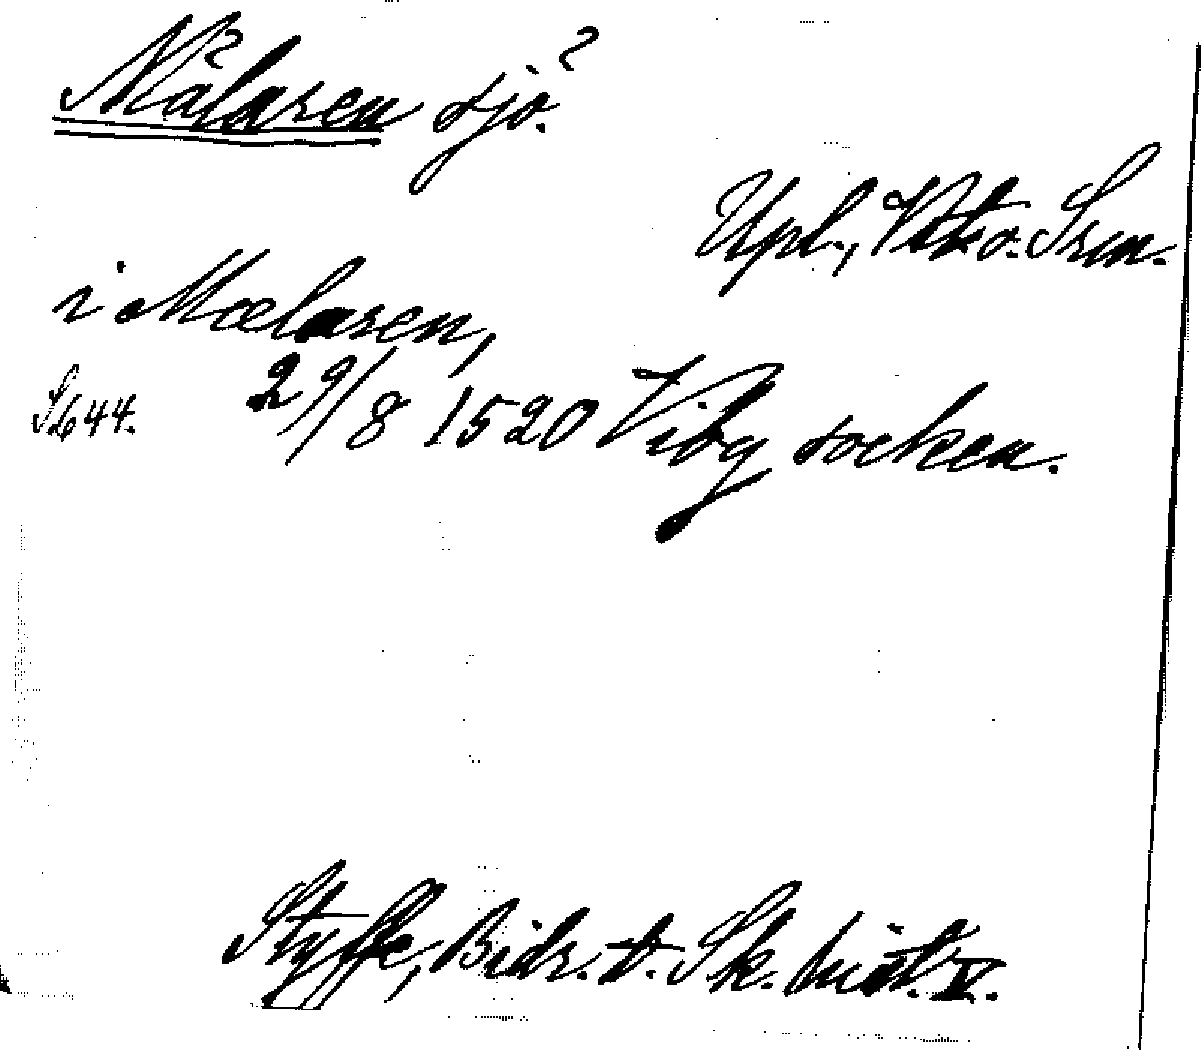 Mälaren sjö?
Upl., Vstm. o. Srm.
i Mælaren,
S. 644. 29/8 1520 Viby socken.
Styffe, Bidr. t. Sk. hist. V.